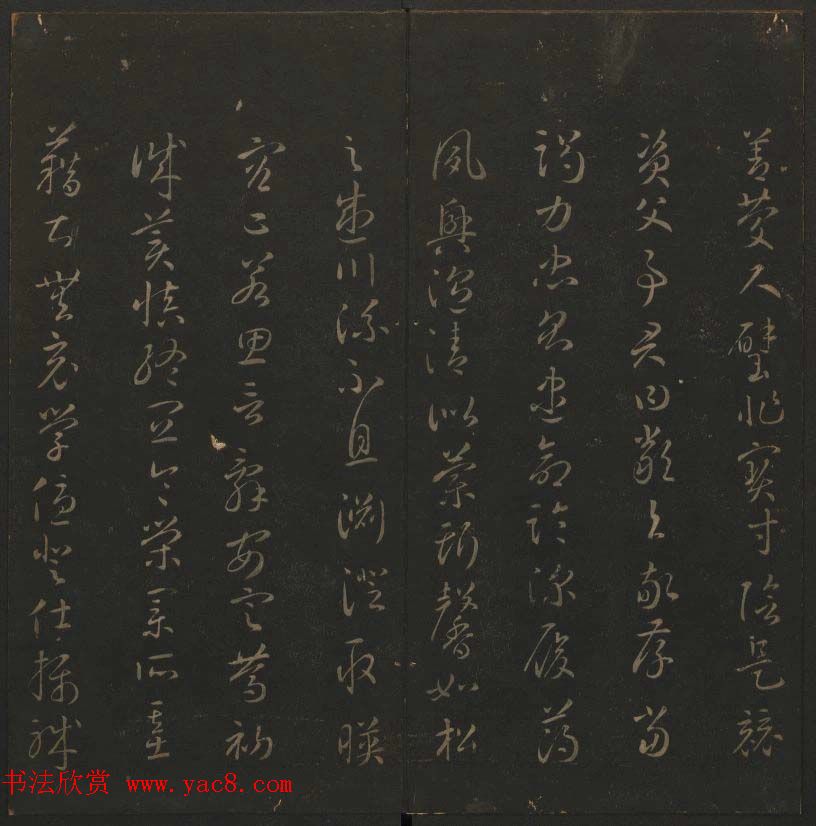 善慶尺璧非寶寸陰是競
資父事君曰嚴與敬孝當
竭力忠則盡命臨深履薄
夙興溫凊似蘭斯馨如松
之盛川流不息淵澄取暎
容止若思言辭安定篤初
誠美慎終宜令榮業所基
藉甚無竟學優登仕攝職
书法欣赏 www.yac8.com